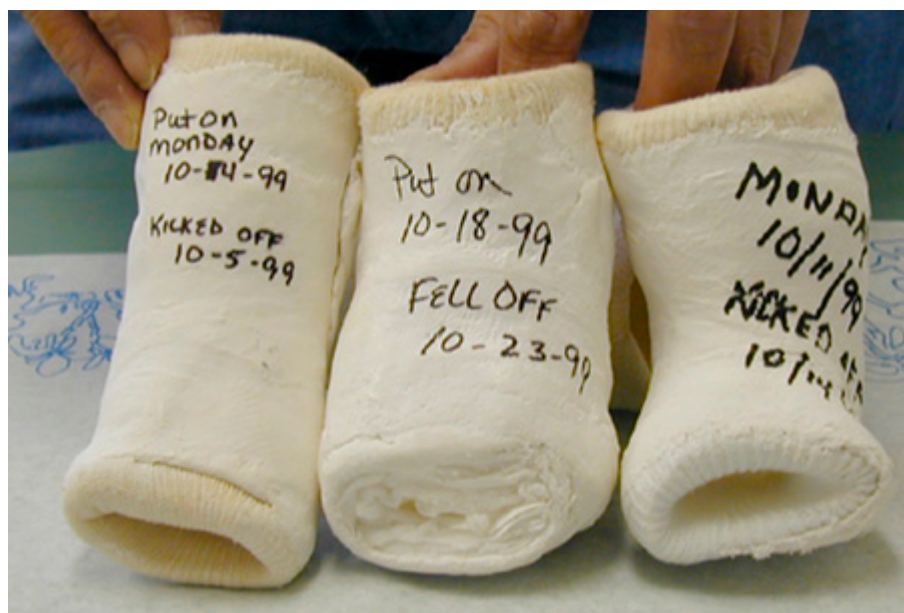 Put on
MONDAY
10-4-99
KICKED OFF
10-5-99
Put on
10-18-99
FELL OFF
10-23-99
MONDAY
10/11/99
KICKED OFF